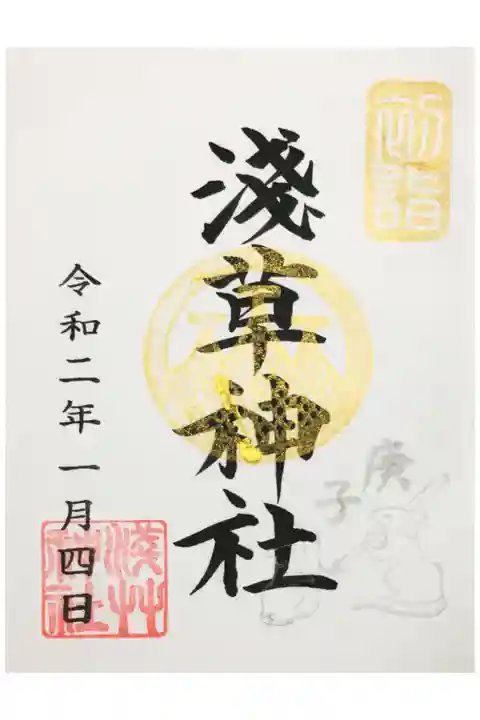 初詣
淺草神社
庚子
令和二年一月四日
淺艸神社